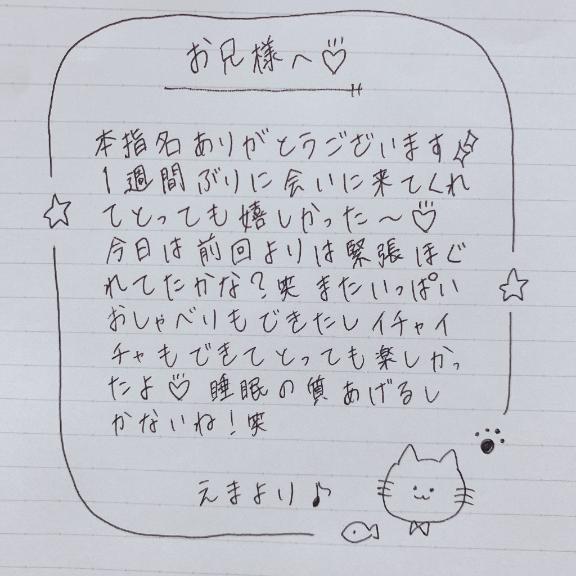 お兄様へ♡
本指名ありがとうございます✨
1週間ぶりに会いに来てくれ
てとっても嬉しかった〜♡
今日は前回よりは緊張ほぐ
れてたかな?笑 またいっぱい
おしゃべりもできたしイチャイ
チャもできてとっても楽しかっ
たよ♡ 睡眠の質あげるし
かないね!笑
えまより♪